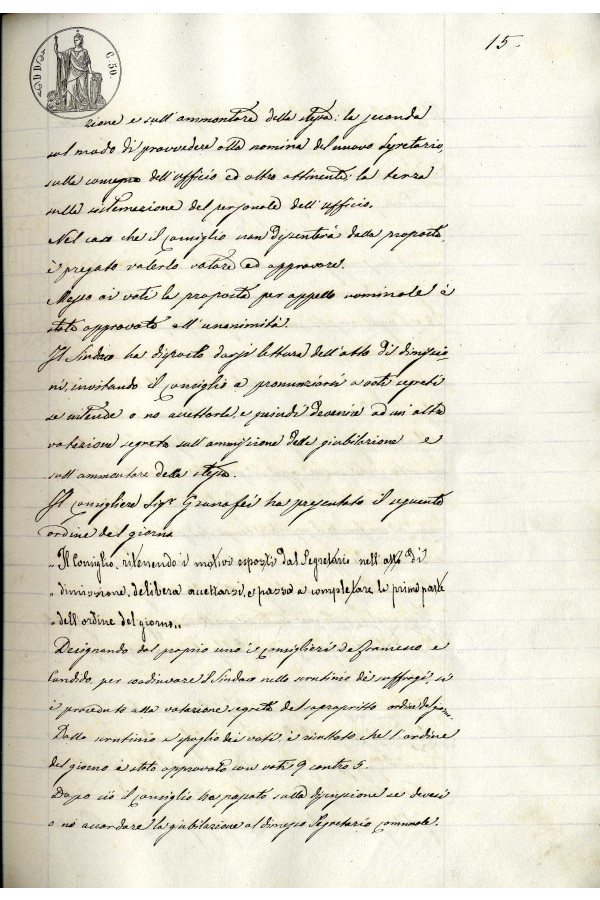 15.
DD
C. 50.
zione e sull'ammontare della stessa; la seconda
sul modo di provvedere alla nomina del nuovo Segretario,
sulla consegna dell'Ufficio ed altro attinente; la terza
sulla sistemazione del personale dell'Ufficio.
Nel caso che il Consiglio non dissenterà dalla proposta,
è pregato volerlo votare ed approvare.
Messo ai voti la proposta per appello nominale è
stato approvato all'unanimità.
Il Sindaco ha disposto darsi lettura dell'atto di dimissio-
ni, invitando il Consiglio a pronunziarsi a voti segreti
se intende o no accettarle, e quindi devenire ad un'altra
votazione segreta sull'ammissione della giubilazione e
sull'ammontare della stessa.
Il Consigliere Sigr. Granafei ha presentato il seguente
ordine del giorno
„Il Consiglio, ritenendo i motivi esposti dal Segretario nell'atto di
„dimissione, delibera accettarsi, e passa a completare la prima parte
„dell'ordine del giorno„
Designando dal proprio seno i Consiglieri de Francesco e
Candido, per coadiuvare il Sindaco nello scrutinio dei suffragi, si
è proceduto alla votazione segreta del soprascritto ordine del giorno.
Dallo scrutinio e spoglio dei voti, è risultato che l'ordine
del giorno è stato approvato con voti 9 contro 5.
Dopo ciò il Consiglio ha passato sulla discussione se devesi
o no accordare la giubilazione al dimesso Segretario Comunale.